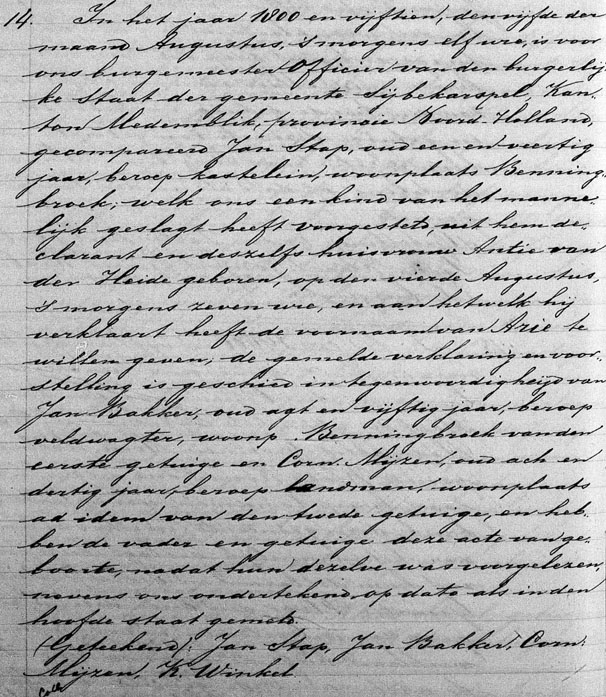 14. In het jaar 1800 en vijftien, den vijfde der
maand Augustus, s morgens elf ure, is voor
ons burgemeester Officier van den burgerlij
ke staat der gemeente Sijbekarspel, Kan-
ton Medemblik, provincie Noord Holland,
gecompareerd Jan Stap, oud een en veertig
jaar, beroep kastelein, woonplaats Benning-
broek; welk ons een kind van het manne-
lijk geslagt heeft voorgesteld, uit hem de-
clarant en deszelfs huisvrouw Antie van
der Heide geboren, op den vierde Augustus,
s morgens zeven ure, en aan hetwelk hij
verklaart heeft de voornaam van Arie te
willen geven; de gemelde verklaring en voor-
stelling is geschied in tegenwoordigheijd van
Jan Bakker, oud agt en vijftig jaar, beroep
veldwagter, woonp. Benningbroek van den
eerste getuige en Corn. Mijzen, oud ach en
dertig jaar, beroep landman, woonplaats
ad idem van den twede getuige, en heb-
ben de vader en getuige deze acte van ge-
boorte, nadat hun dezelve was voorgelezen,
nevens ons ondertekend, op dato als in den
hoofde staat gemeld.
(Geteekend): Jan Stap, Jan Bakker, Corn:
Mijzen, K. Winkel.